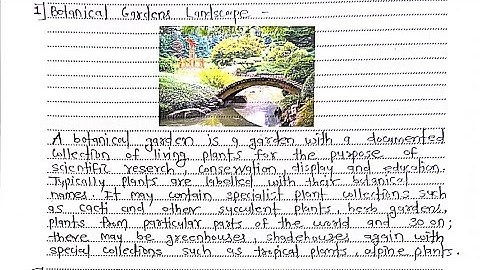 1] Botanical Gardens Landscape -
A botanical garden is a garden with a documented
collection of living plants for the purpose of
scientific reserch, conservation, display and education.
Typically plants are labelled with their botanical
names. It may contain specialist plant collections such
as cacti and other succulent plants, herb gardens,
plants from particular parts of the world and so on;
there may be greenhouses, shadehouses again with
special collections such as tropical plants, alpine plants.